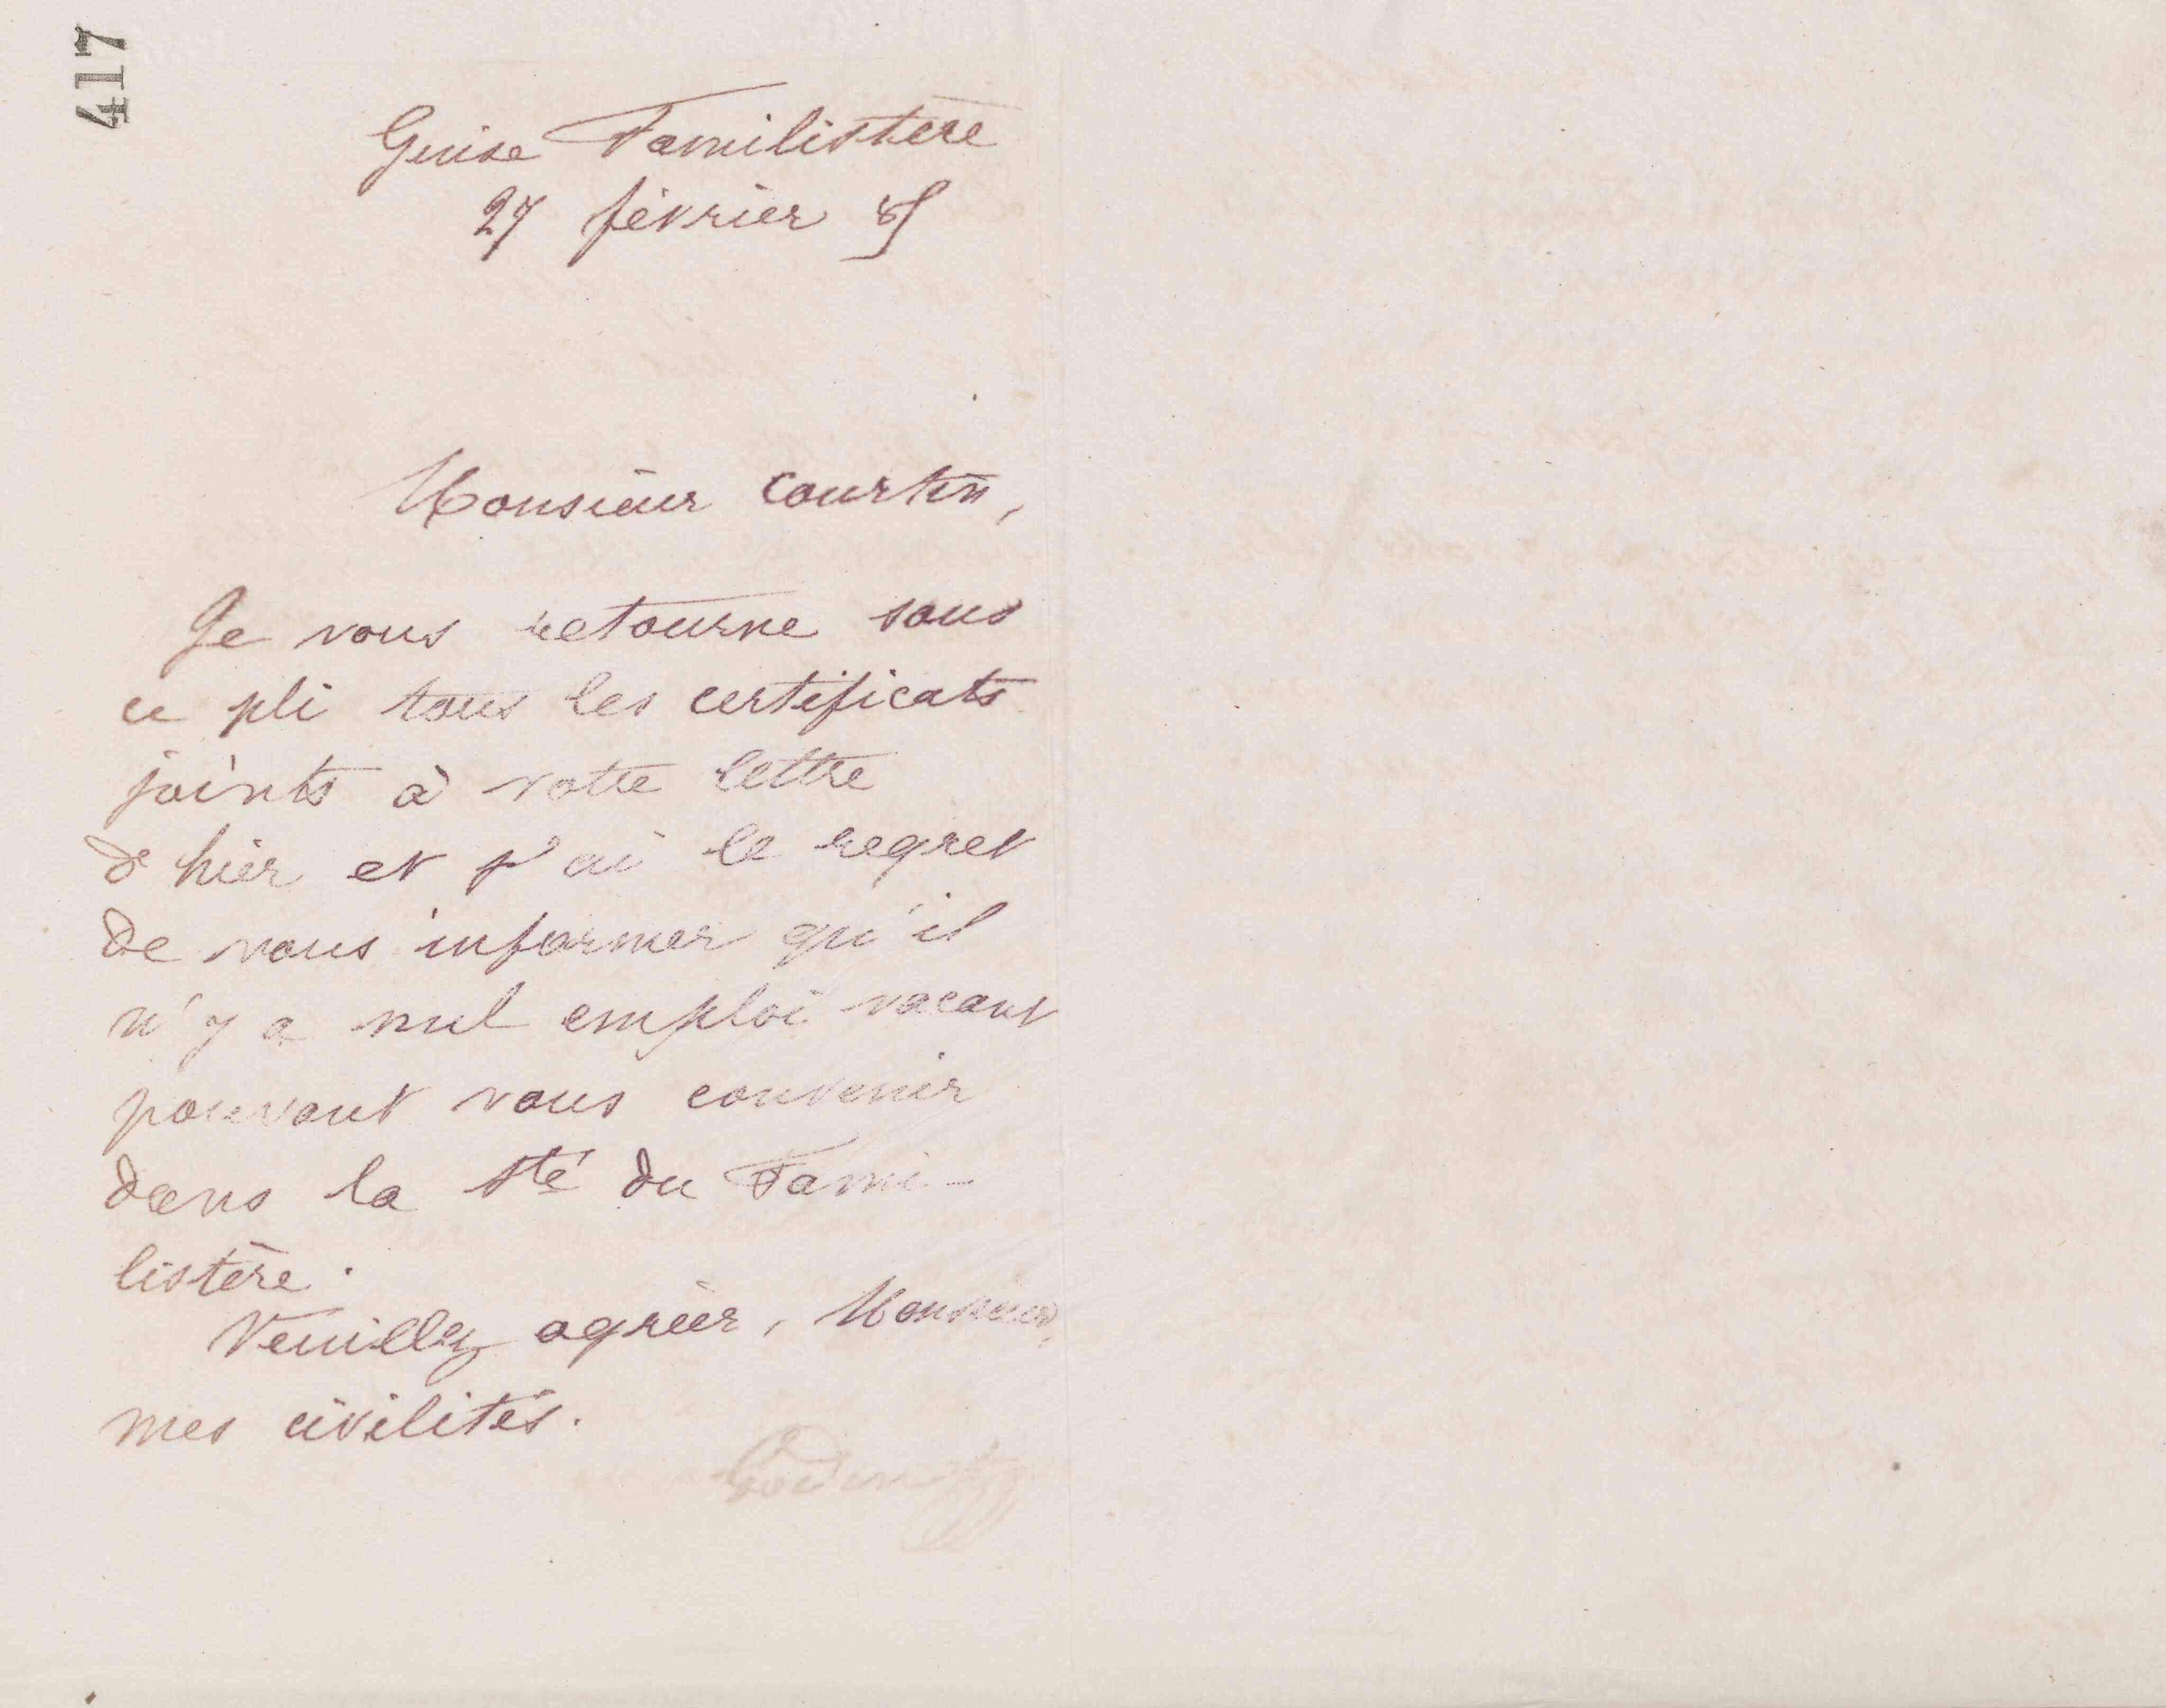 417
Guise Familistère
27 février 85
Monsieur Courtin,
Je vous retourne sous
ce pli tous les certificats
joints à votre lettre
d'hier et j'ai le regret
de vous informer qu'il
n'y a nul emploi vacant
pouvant vous convenir
dans la Sté du Fami-
listère.
Veuillez agréer, Monsieur,
mes civilités.
Godin